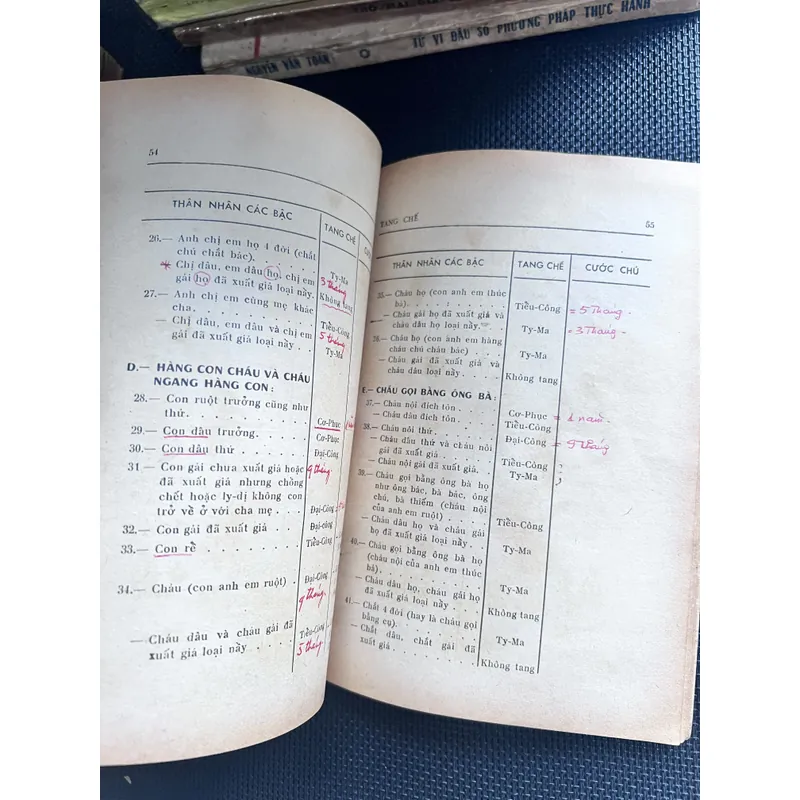 THỌ MAI GIA
NGUYỄN VĂN TOÀN TỬ VI ĐẨU SỐ PHƯƠNG PHÁP THỰC HÀNH
54
THÂN NHÂN CÁC BẬC TANG CHẾ
26.— Anh chị em họ 4 đời (chắt
chú chắt bác). Ty-Ma
— Chị dâu, em dâu họ, chị em 3 tháng
gái họ đã xuất giá loại nầy. Không tang
27.— Anh chị em cùng mẹ khác
cha. Tiểu-Công
— Chị dâu, em dâu và chị em 5 tháng
gái đã xuất giá loại nầy . Ty-Ma
D.— HÀNG CON CHÁU VÀ CHÁU
NGANG HÀNG CON :
28.— Con ruột trưởng cũng như
thứ. Cơ-Phục
29.— Con dâu trưởng. Cơ-Phục
30.— Con dâu thứ Đại-Công
31— Con gái chưa xuất giá hoặc 9 tháng
đã xuất giá nhưng chồng
chết hoặc ly-dị không con
trở về ở với cha mẹ . Đại-Công
32.— Con gái đã xuất giá . Đại-công
33.— Con rể Tiểu-Công
34.— Cháu (con anh em ruột) . Đại-Công
9 tháng.
— Cháu dâu và cháu gái đã Tiểu-Công
xuất giá loại nầy 5 tháng
TANG CHẾ 55
THÂN NHÂN CÁC BẬC TANG CHẾ CƯỚC CHÚ
35.— Cháu họ (con anh em thúc
bá). Tiểu-Công = 5 Tháng
— Cháu gái họ đã xuất giá và
cháu dâu họ loại nầy. Ty-Ma = 3 Tháng
36.— Cháu họ (con anh em hàng
cháu chú cháu bác) Ty-Ma
— Cháu gái đã xuất giá và
cháu dâu loại nầy. Không tang
E.— CHÁU GỌI BẰNG ÔNG BÀ :
37.— Cháu nội đích tôn Cơ-Phục = 1 năm.
— Cháu dâu đích tôn Tiểu-Công
38.— Cháu nội thứ Đại-Công = 9 tháng
— Cháu dâu thứ và cháu nội
gái đã xuất giá. Tiểu-Công ?
— Cháu nội gái đã xuất giá. Ty-Ma ?
39.— Cháu gọi bằng ông bà họ
như ông bác, bà bác, ông
chú, bà thiếm (cháu nội
của anh em ruột) Tiểu-Công
— Cháu dâu họ và cháu gái
họ đã xuất giá loại nầy. Ty-Ma
40.— Cháu gọi bằng ông bà họ
(cháu nội của anh em thúc
bá). Ty-Ma
— Cháu dâu họ, cháu gái họ
đã xuất giá loại nầy Không tang
41.— Chắt 4 đời (hay là cháu gọi
bằng cụ). Ty-Ma
— Chắt dâu, chắt gái đã
xuất giá. Không tang